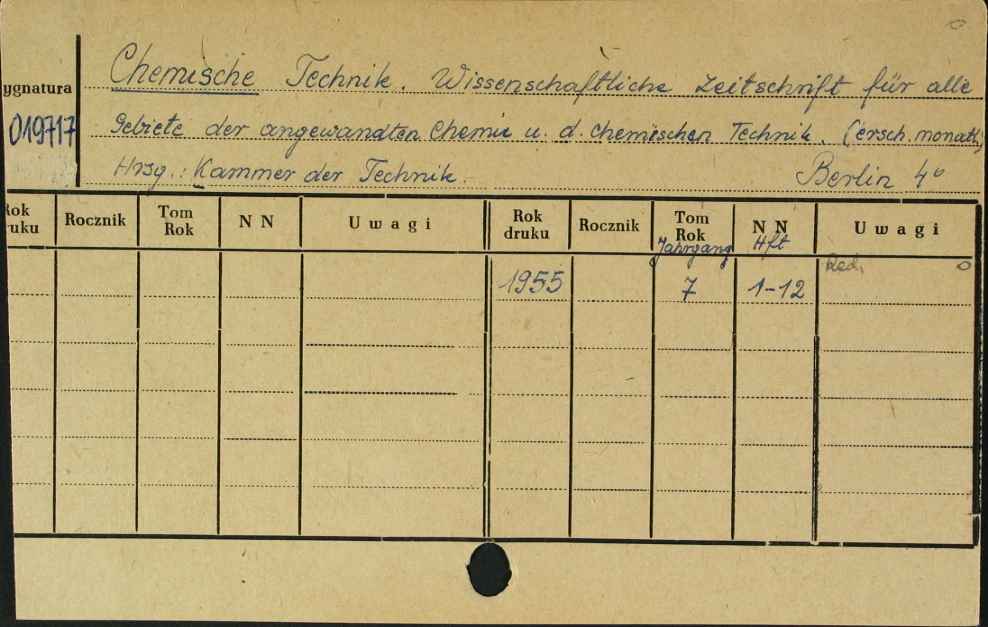 Chemische Technik. Wissenschaftliche Zeitschrift für alle
ygnatura
019717
Gebiete der angewandten Chemie u. d. chemischen Technik. (ersch. monatl.)
Hrsg.: Kammer der Technik. Berlin 4°
Rok druku Rocznik Tom Rok N N U w a g i Rok druku Rocznik Tom Rok N N U w a g i
Jahrgang Hft
1955 7 1-12